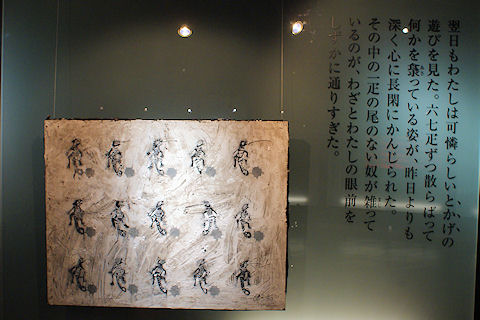 翌日もわたしは可憐らしいとかげの
遊びを見た。六七疋ずつ散らばって
何かを猟っている姿が、昨日よりも
深く心に長閑にかんじられた。
その中の一疋の尾のない奴が雑って
いるのが、わざとわたしの眼前を
しずかに通りすぎた。